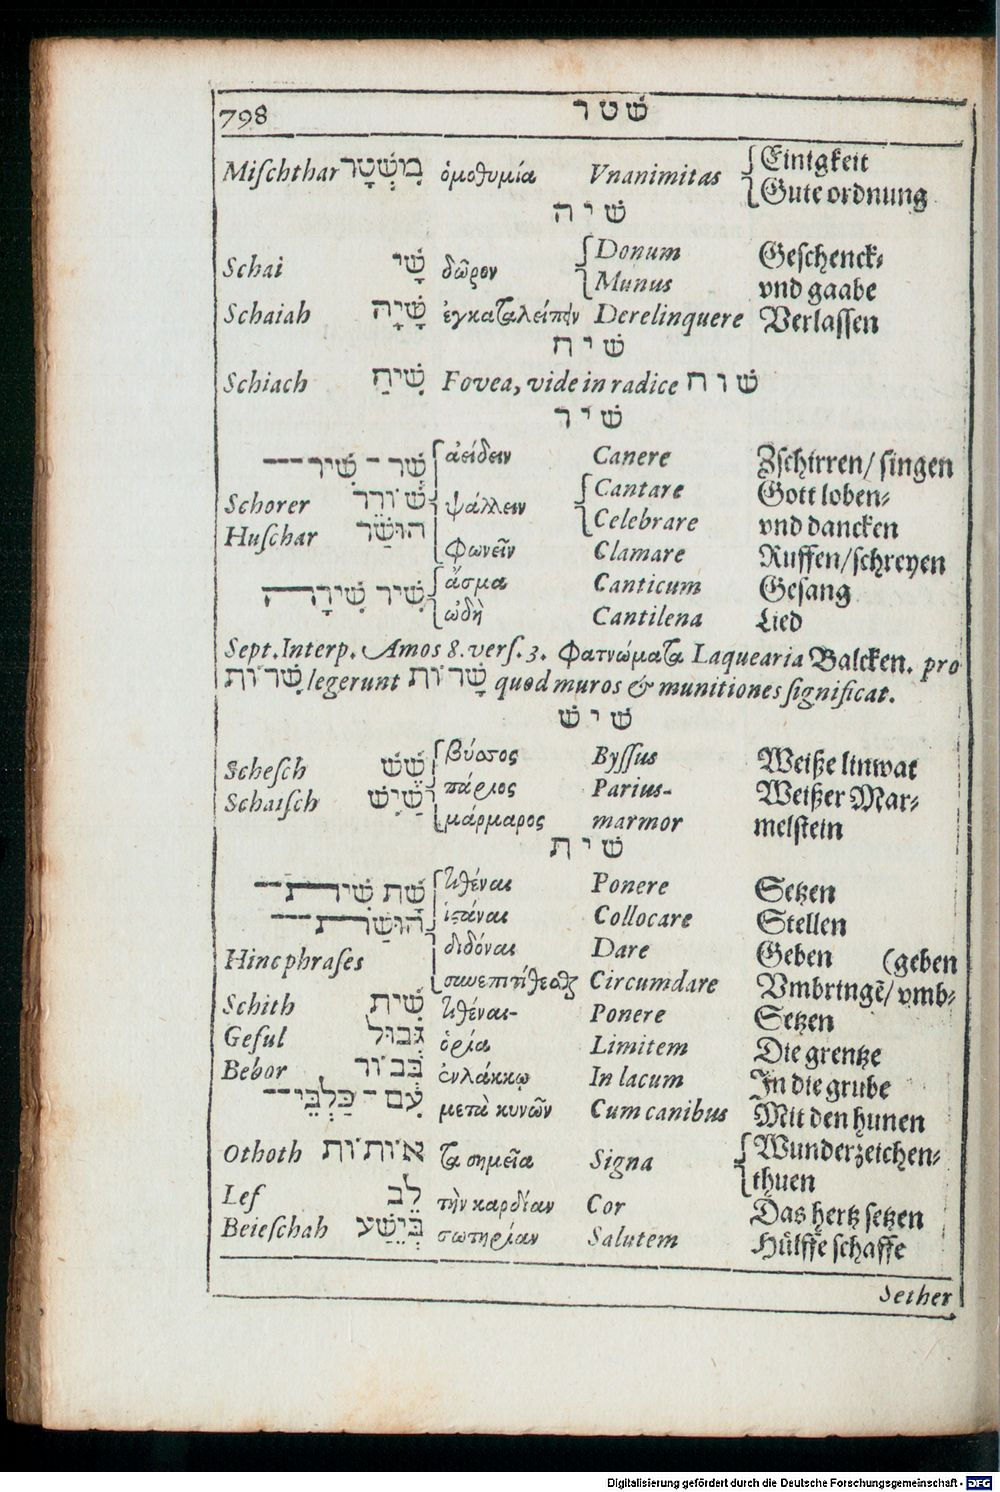 798 שׁטר
Miſchthar מִשְׁטָר ὁμοθυμία Vnanimitas Einigkeit
Gute ordnung
שׁיה
Schai שָׁי δῶρον Donum Geſchenck⸗
Munus vnd gaabe
Schaiah שָׁיָה ἐγκαταλείπειν Derelinquere Verlaſſen
שׁיח
Schiach שִׁיחַ Fovea, vide in radice שׁוח
שׁיר
שָׁר - שִׁיר --- ἀείδειν Canere Zſchirren/ ſingen
Schorer שׁוֹרֵר ψάλλειν Cantare Gott loben⸗
Huſchar הוּשַׁר Celebrare vnd dancken
φωνεῖν Clamare Ruffen/ſchreyen
שִׁיר שִׁירָה ἄσμα Canticum Geſang
ὠδὴ Cantilena Lied
Sept. Interp. Amos 8. verſ. 3. Φατνώματα Laquearia Balcken. pro
שִׁרוֹת legerunt שָׁרוֹת quod muros & munitiones ſignificat.
שׁישׁ
Scheſch שֵׁשׁ βύσσος Byſſus Weiße linwat
Schaiſch שַׁיִשׁ πάριος Parius- Weißer Mar⸗
μάρμαρος marmor melſtein
שׁית
שָׁת שִׁית -- τιθέναι Ponere Setzen
הוּשַׁת --- ἱστάναι Collocare Stellen
Hinc phraſes διδόναι Dare Geben (geben
συνεπιτίθεσθαι Circumdare Vmbringẽ/ vmb⸗
Schith שִׁית τιθέναι- Ponere Setzen
Geful גְּבוּל ὁρία Limitem Die grentze
Bebor בְּבוֹר ἐν λάκκῳ In lacum In die grube
עִם - כַּלְבֵי -- μετὰ κυνῶν Cum canibus Mit den hunen
Othoth אוֹתוֹת τα σημεῖα Signa Wunderzeichen⸗
thuen
Lef לֵב τὴν καρδίαν Cor Das hertz ſetzen
Beieſchah בְּיֵשַׁע σωτηρίαν Salutem Hülffe ſchaffe
Sether
Digitalisierung gefördert durch die Deutsche Forschungsgemeinschaft - DFG